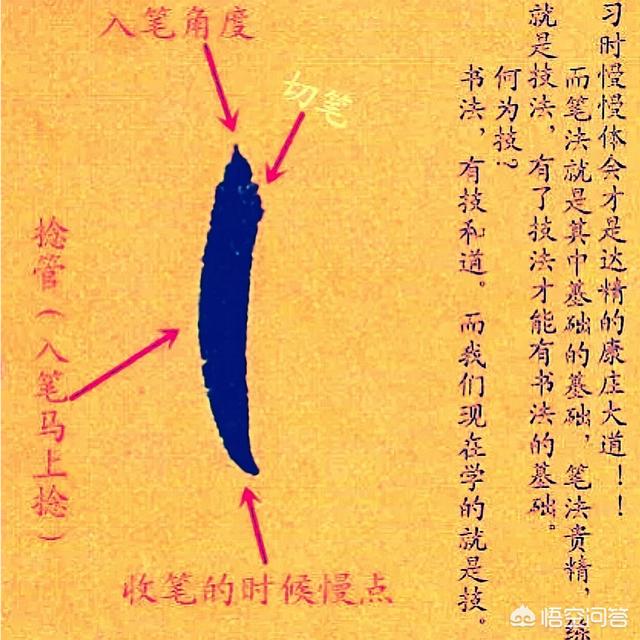 入笔角度
切笔
捻管（入笔马上捻）
收笔的时候慢点
书法，有技和道。而我们现在学的就是技。
何为技？
就是技法，有了技法才能有书法的基础。
而笔法就是其中基础的基础，笔法贵精，练
习时慢慢体会才是达精的康庄大道！！
悟空问答